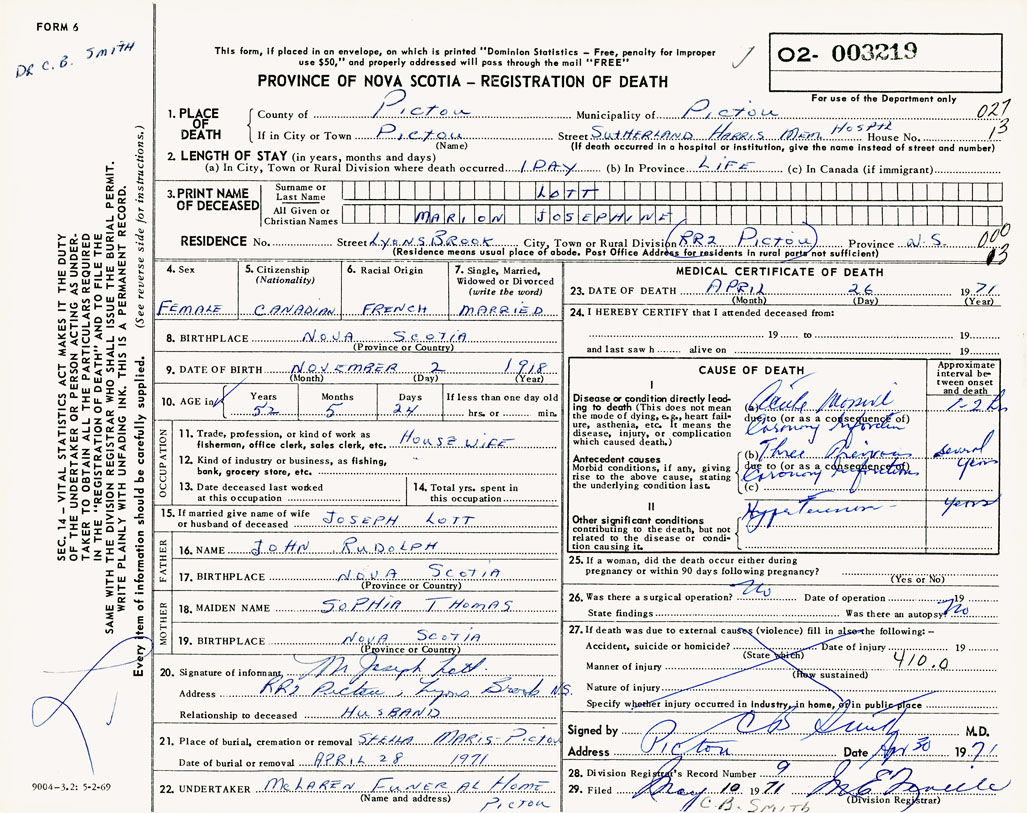 FORM 6
DR C. B. SMITH
This form, if placed in an envelope, on which is printed "Dominion Statistics – Free, penalty for improper
use $50," and properly addressed will pass through the mail "FREE"
PROVINCE OF NOVA SCOTIA – REGISTRATION OF DEATH
02- 003219
For use of the Department only
027
13
1. PLACE OF DEATH
County of Pictou Municipality of Pictou
If in City or Town Pictou Street SUTHERLAND HARRIS MEM. HOSPTL House No.
(Name) (If death occurred in a hospital or institution, give the name instead of street and number)
2. LENGTH OF STAY (in years, months and days)
(a) In City, Town or Rural Division where death occurred 1 DAY (b) In Province LIFE (c) In Canada (if immigrant)
3. PRINT NAME OF DECEASED
Surname or Last Name LOTT
All Given or Christian Names MARION JOSEPHINE
RESIDENCE No. Street LYONS BROOK City, Town or Rural Division RR2 PICTOU Province N.S.
(Residence means usual place of abode. Post Office Address for residents in rural parts not sufficient)
000
13
4. Sex
FEMALE
5. Citizenship
(Nationality)
CANADIAN
6. Racial Origin
FRENCH
7. Single, Married,
Widowed or Divorced
(write the word)
MARRIED
8. BIRTHPLACE NOVA SCOTIA
(Province or Country)
9. DATE OF BIRTH NOVEMBER 2 1918
(Month) (Day) (Year)
10. AGE in Years Months Days If less than one day old
52 5 24 hrs. or min.
OCCUPATION
11. Trade, profession, or kind of work as
fisherman, office clerk, sales clerk, etc. HOUSEWIFE
12. Kind of industry or business, as fishing,
bank, grocery store, etc.
13. Date deceased last worked
at this occupation
14. Total yrs. spent in
this occupation
15. If married give name of wife
or husband of deceased JOSEPH LOTT
FATHER
16. NAME JOHN RUDOLPH
17. BIRTHPLACE NOVA SCOTIA
(Province or Country)
MOTHER
18. MAIDEN NAME SOPHIA THOMAS
19. BIRTHPLACE NOVA SCOTIA
(Province or Country)
20. Signature of informant Mr Joseph Lott
Address RR2 Pictou, Lyons Brook N.S.
Relationship to deceased HUSBAND
21. Place of burial, cremation or removal STELLA MARIS - PICTOU
Date of burial or removal APRIL 28 1971
22. UNDERTAKER McLAREN FUNERAL HOME
(Name and address) PICTOU
MEDICAL CERTIFICATE OF DEATH
23. DATE OF DEATH APRIL 26 1971
(Month) (Day) (Year)
24. I HEREBY CERTIFY that I attended deceased from:
19 to 19
and last saw h alive on 19
CAUSE OF DEATH
Approximate
interval be-
tween onset
and death
I
Disease or condition directly lead-
ing to death (This does not mean
the mode of dying, e.g., heart fail-
ure, asthenia, etc. It means the
disease, injury, or complication
which caused death.)
(a) Acute Massive
due to (or as a consequence of)
Coronary
1-2 hrs
Antecedent causes
Morbid conditions, if any, giving
rise to the above cause, stating
the underlying condition last.
(b) Three Previous
due to (or as a consequence of)
Coronary Infarctions
(c)
several
years
II
Other significant conditions
contributing to the death, but not
related to the disease or condi-
tion causing it.
Hypertension
years
25. If a woman, did the death occur either during
pregnancy or within 90 days following pregnancy?
(Yes or No)
26. Was there a surgical operation? No Date of operation 19
State findings Was there an autopsy? No
27. If death was due to external causes (violence) fill in also the following: –
Accident, suicide or homicide? Date of injury 19
(State which)
410.0
Manner of injury
(How sustained)
Nature of injury
Specify whether injury occurred in industry, in home, or in public place
Signed by C B Smith M.D.
Address Pictou Date Apr 30 1971
28. Division Registrar's Record Number 9
29. Filed May 10 1971
(Division Registrar)
C. B. SMITH
SEC. 14 – VITAL STATISTICS ACT MAKES IT THE DUTY
OF THE UNDERTAKER OR PERSON ACTING AS UNDER-
TAKER TO OBTAIN ALL THE PARTICULARS REQUIRED
IN THE "REGISTRATION OF DEATH" AND TO FILE THE
SAME WITH THE DIVISION REGISTRAR WHO SHALL ISSUE THE BURIAL PERMIT.
WRITE PLAINLY WITH UNFADING INK. THIS IS A PERMANENT RECORD.
Every item of information should be carefully supplied. (See reverse side for instructions.)
9004-3.2: 5-2-69